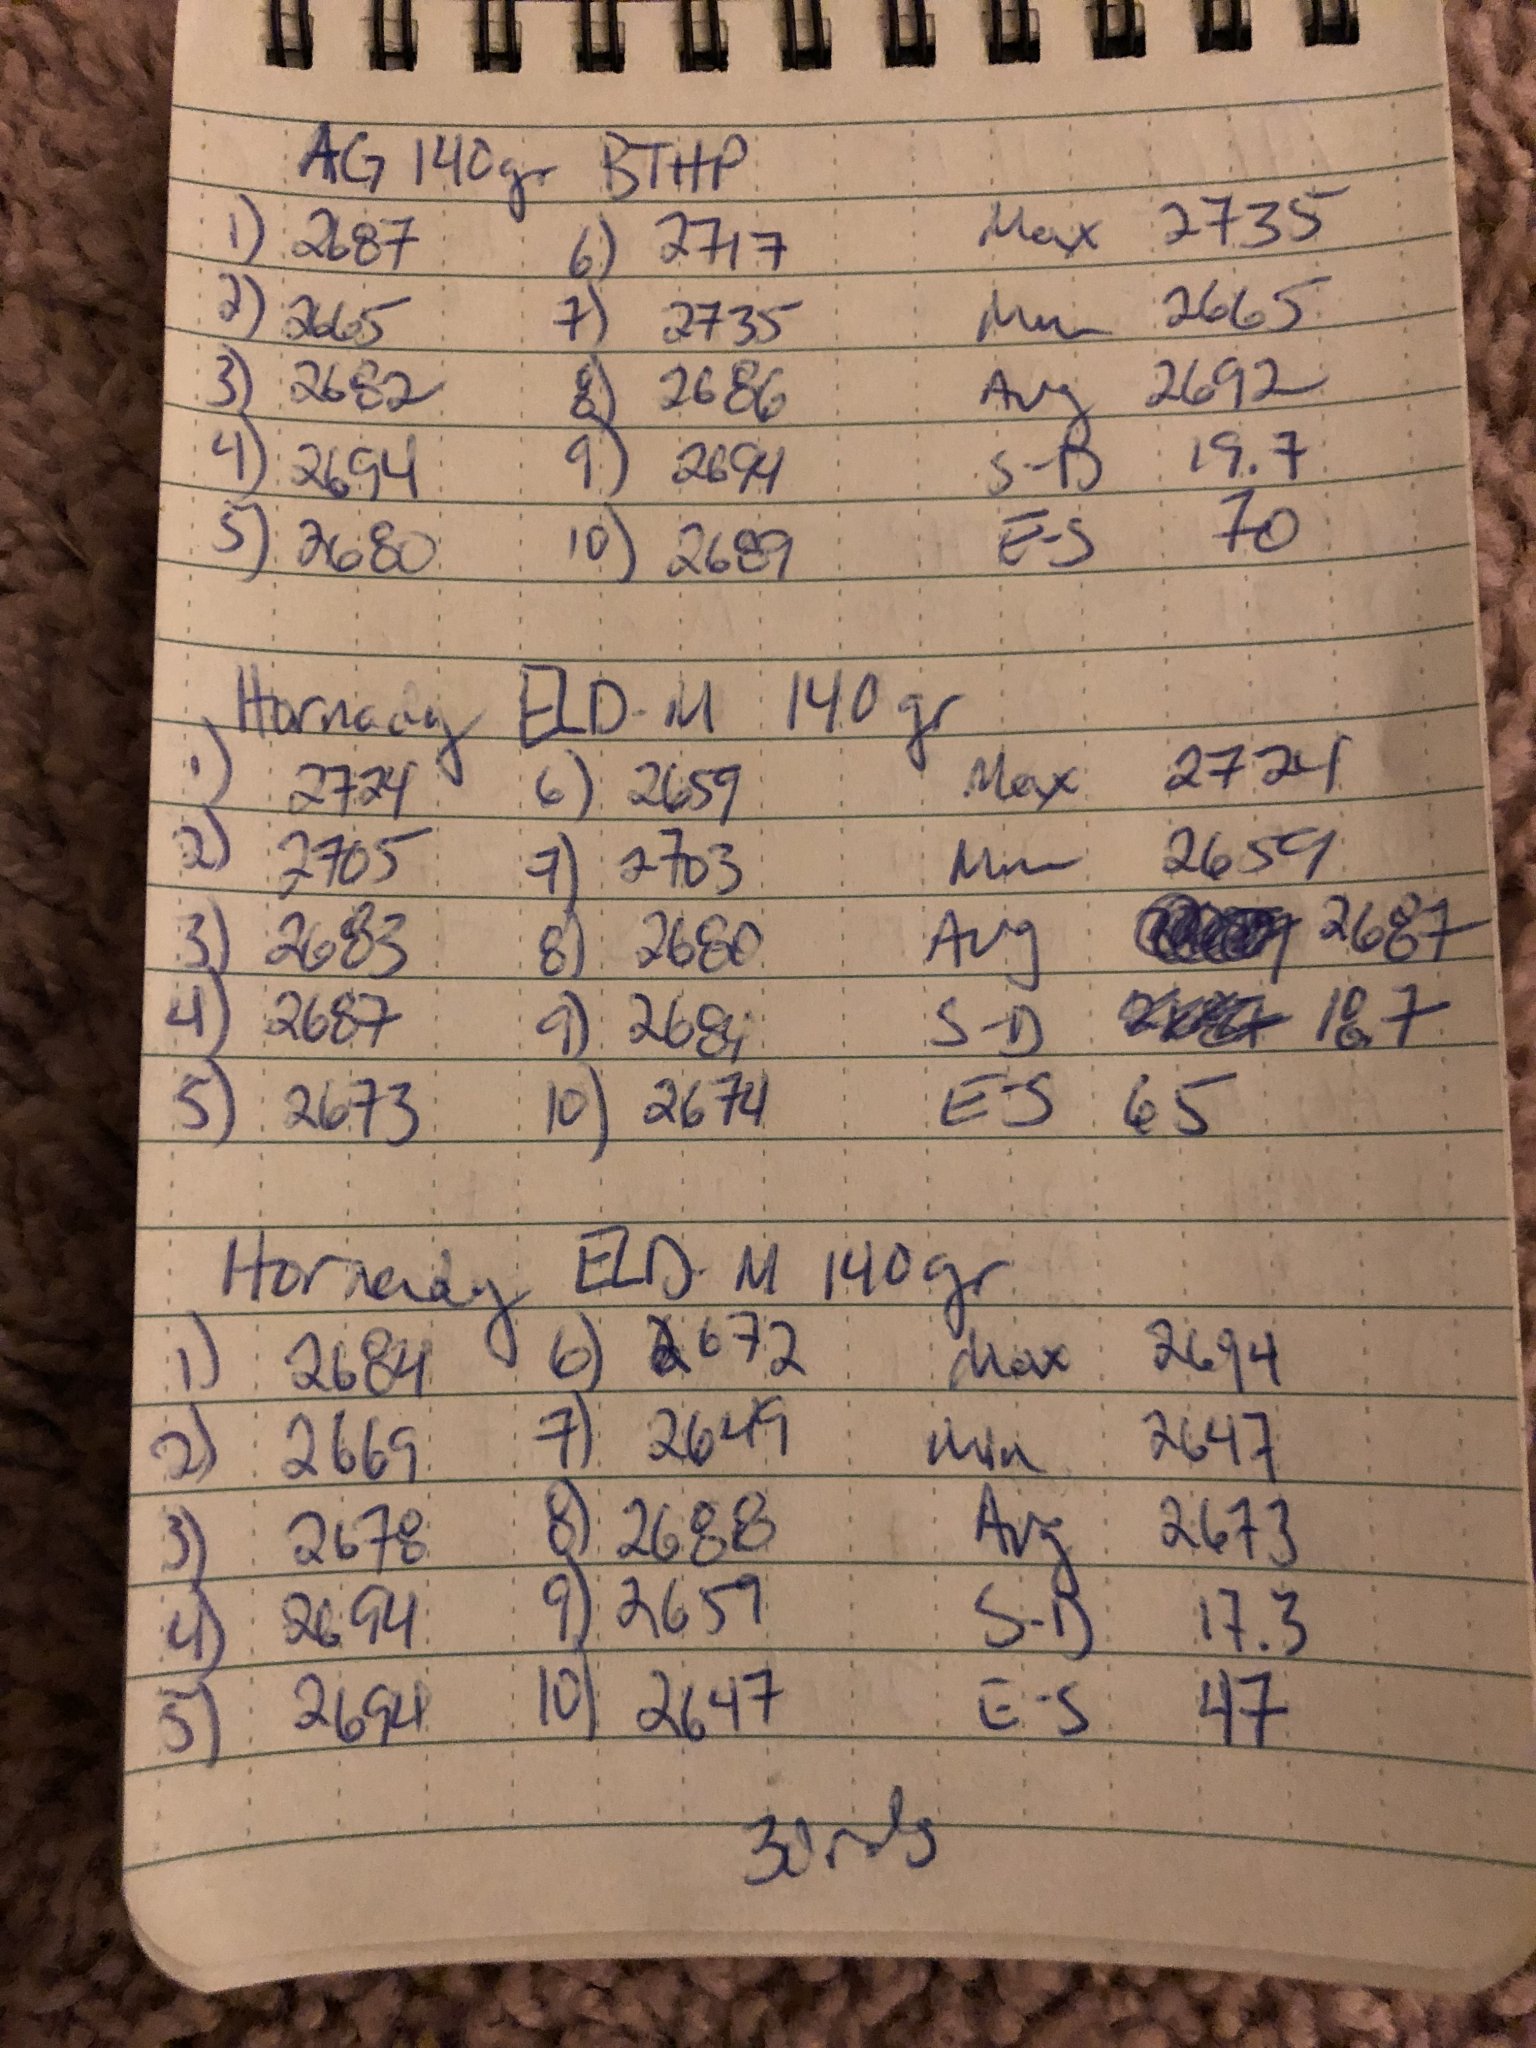 AG 140gr BTHP
1) 2687 6) 2717 Max 2735
2) 2665 7) 2735 Min 2665
3) 2682 8) 2686 Avg 2692
4) 2694 9) 2694 S-D 19.7
5) 2680 10) 2689 E-S 70
Hornady ELD-M 140gr
1) 2724 6) 2659 Max 2724
2) 2705 7) 2703 Min 2659
3) 2683 8) 2680 Avg 2687
4) 2687 9) 2681 S-D
5) 2673 10) 2674 E-S 65
Hornady ELD-M 140gr
1) 2684 6) 2672 Max 2694
2) 2669 7) 2649 Min 2647
3) 2678 8) 2688 Avg 2673
4) 2694 9) 2659 S-D 17.3
5) 2694 10) 2647 E-S 47
30 rnds